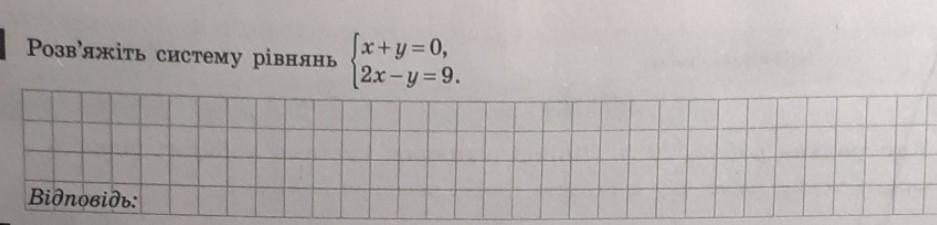 Розв'яжіть систему рівнянь { x + y = 0,
2x – y = 9.
Відповідь: